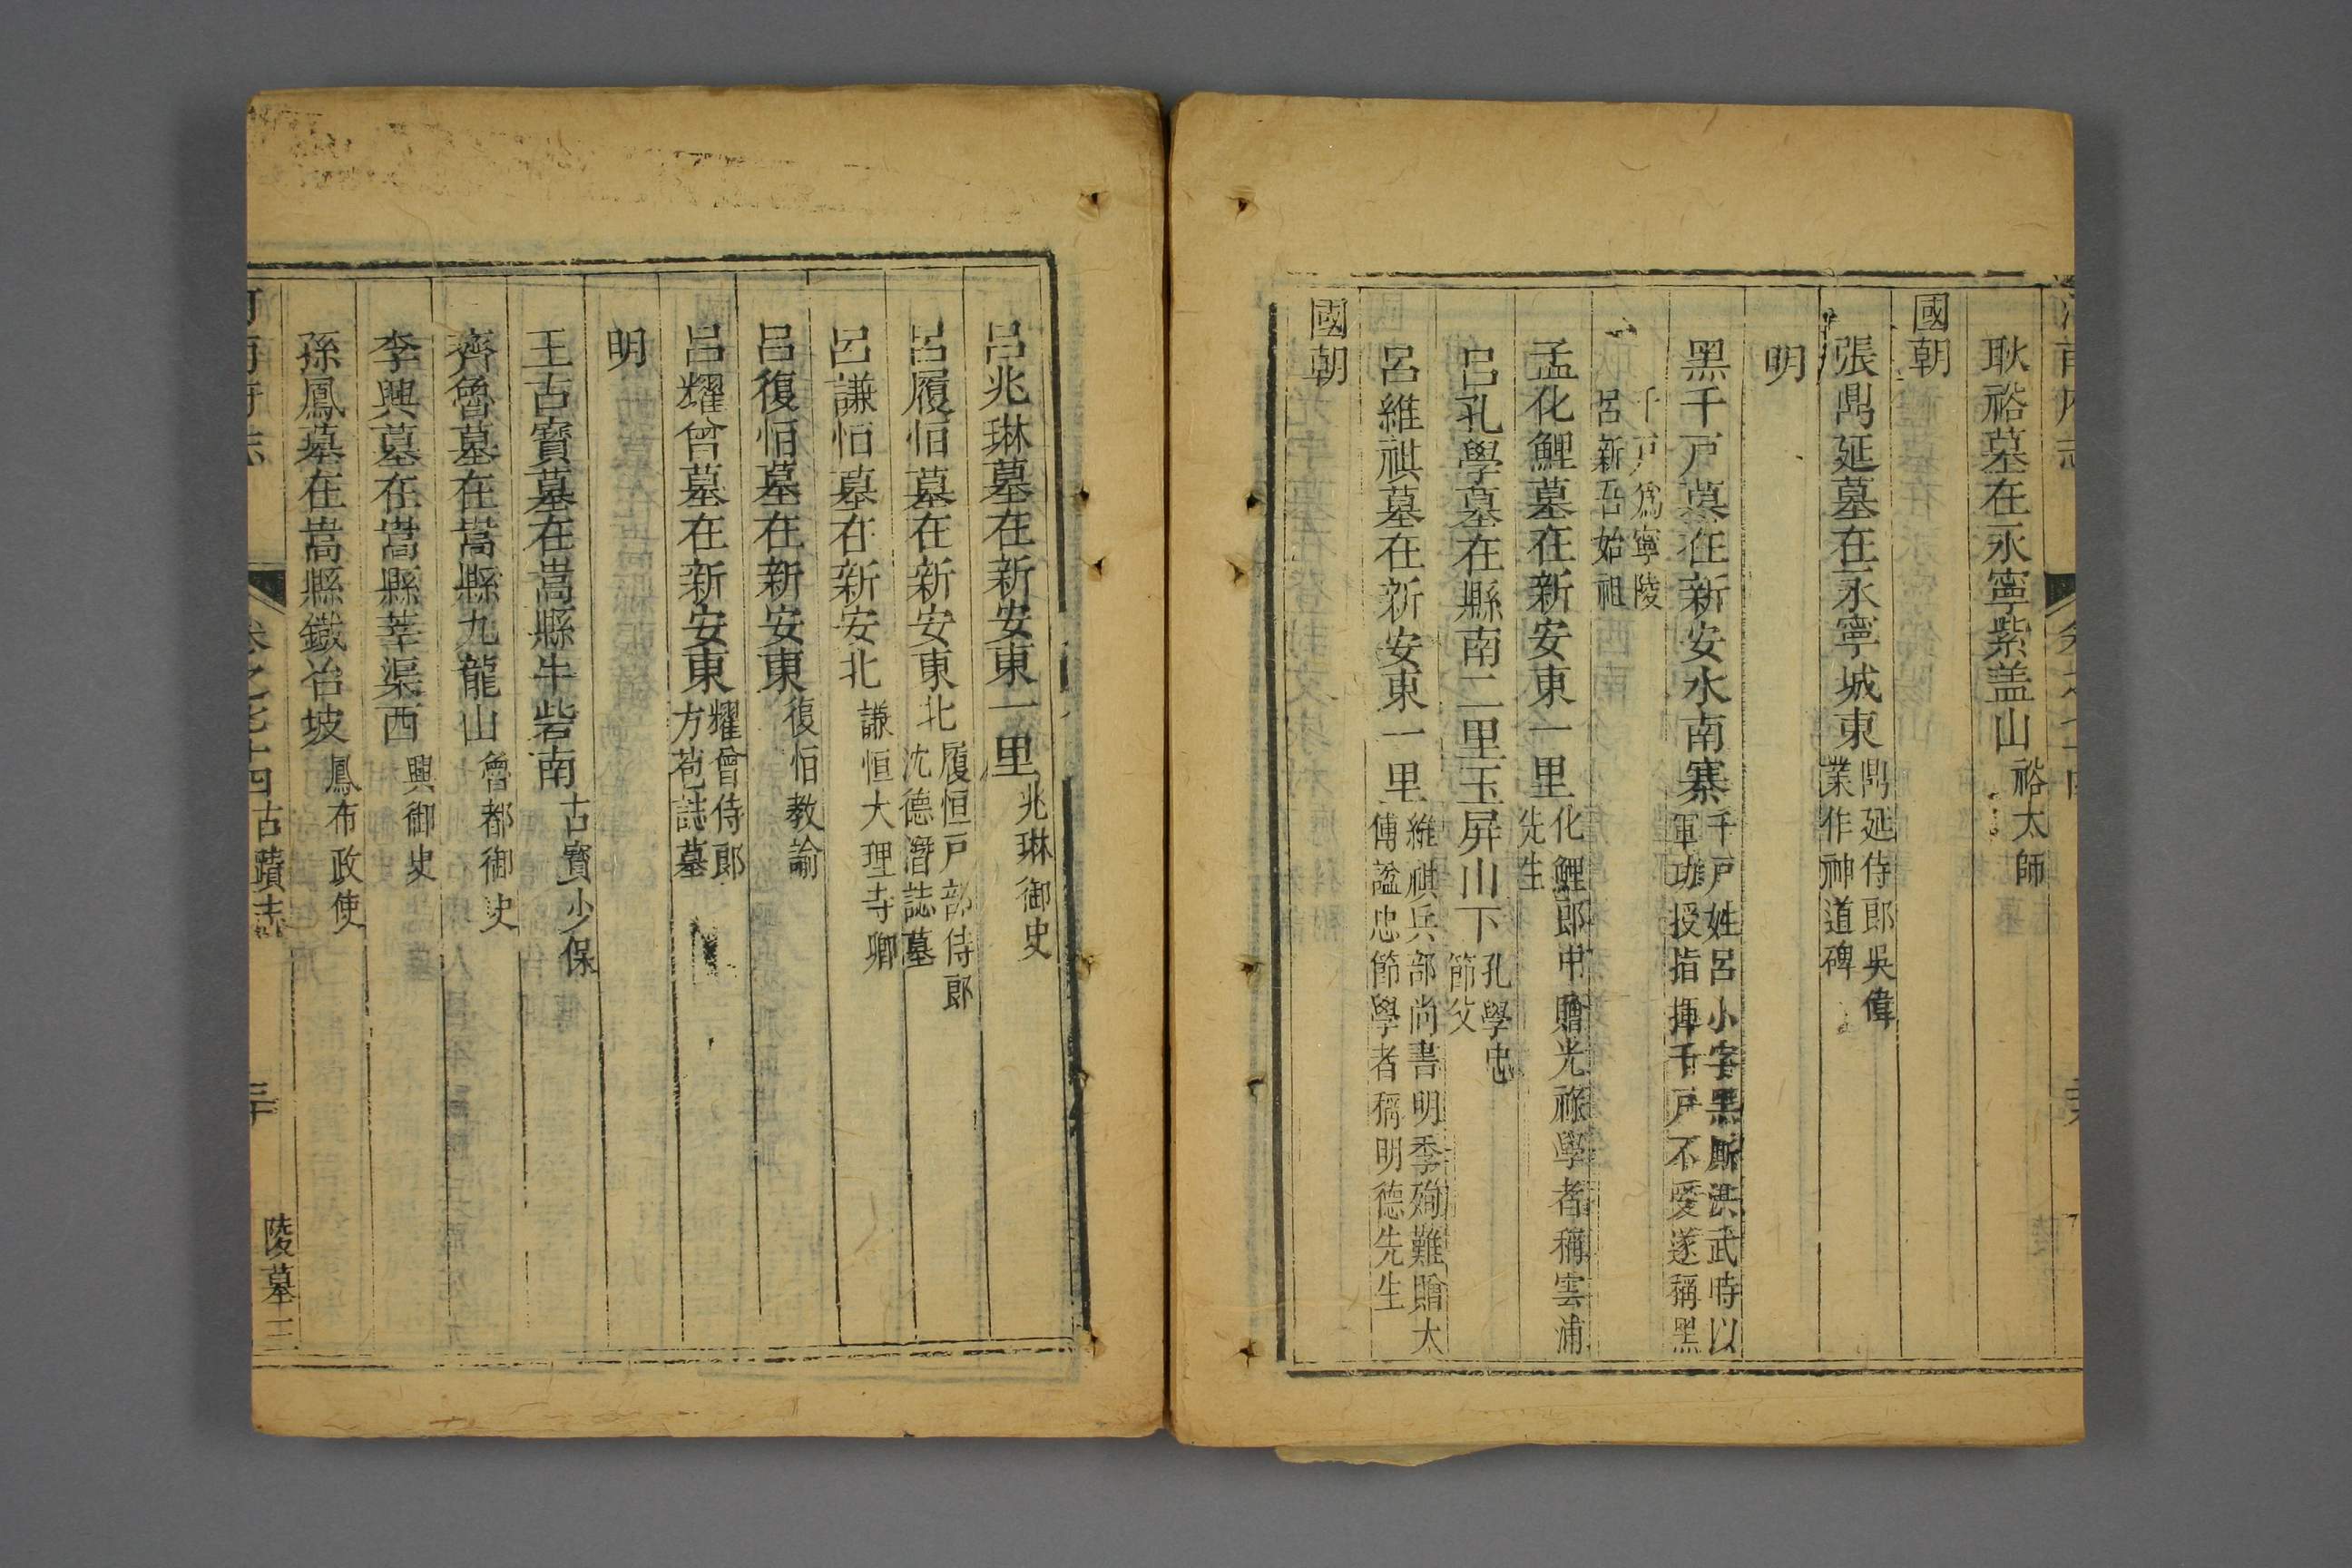 耿裕墓在永寧紫盖山裕太師
國朝
張鼎延墓在永寧城東鼎延侍郎吳偉業作神道碑
明
黑千戸墓在新安水南寨千戸姓呂小字黑厮洪武時以軍功授指揮千戸不受遂稱黑
千戸爲寧陵呂新吾始祖
孟化鯉墓在新安東一里化鯉郎中贈光祿學者稱雲浦先生
呂孔學墓在縣南二里玉屛山下孔學忠節父
呂維祺墓在新安東一里維祺兵部尚書明季殉難贈太傅謚忠節學者稱明德先生
國朝
呂兆琳墓在新安東一里兆琳御史
呂履恒墓在新安東北履恒戸部侍郎沈德潛誌墓
呂謙恒墓在新安北謙恒大理寺卿
呂復恒墓在新安東復恒教諭
呂耀曾墓在新安東耀曾侍郎方苞誌墓
明
王古寶墓在嵩縣牛砦南古寶少保
齊魯墓在嵩縣九龍山魯都御史
李興墓在嵩縣莘渠西興御史
孫鳳墓在嵩縣鐵冶坡鳳布政使
卷之七十四古蹟志
陵墓三